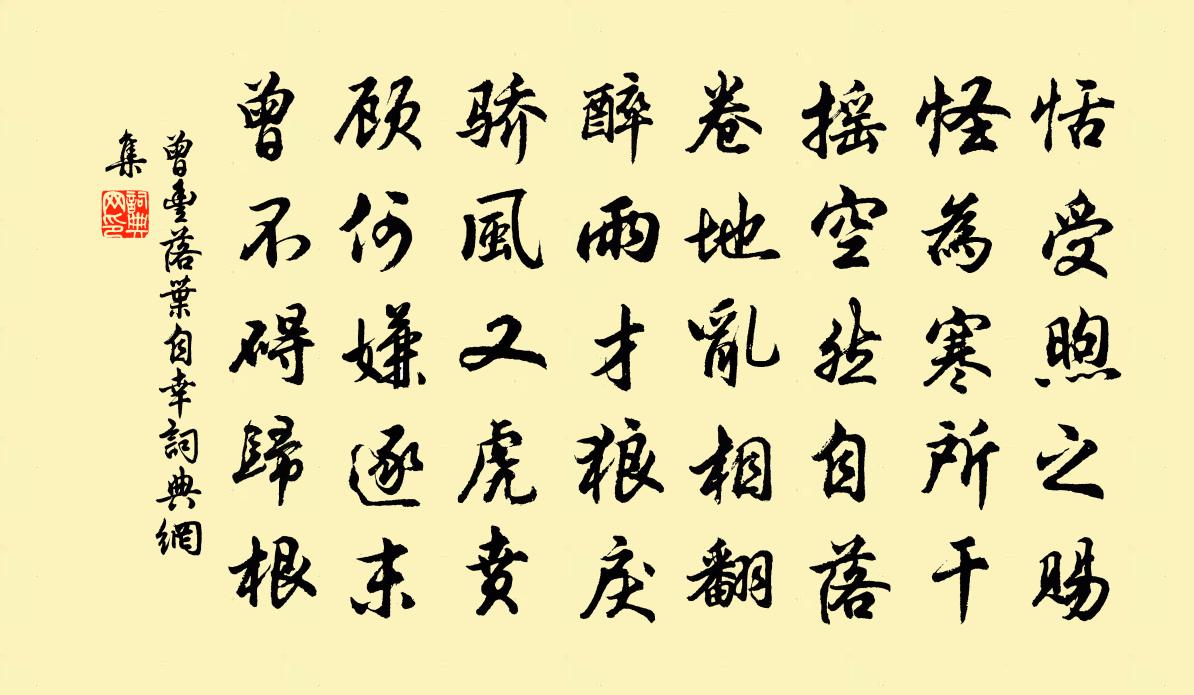 恬受煦之賜
怪為寒所干
摇空然自落
卷地亂相翻
醉雨才狼戾
骄風又虎賁
顾何嫌逐末
曾不碍歸根
曾豊落葉自幸詞典網
集
詞典网印